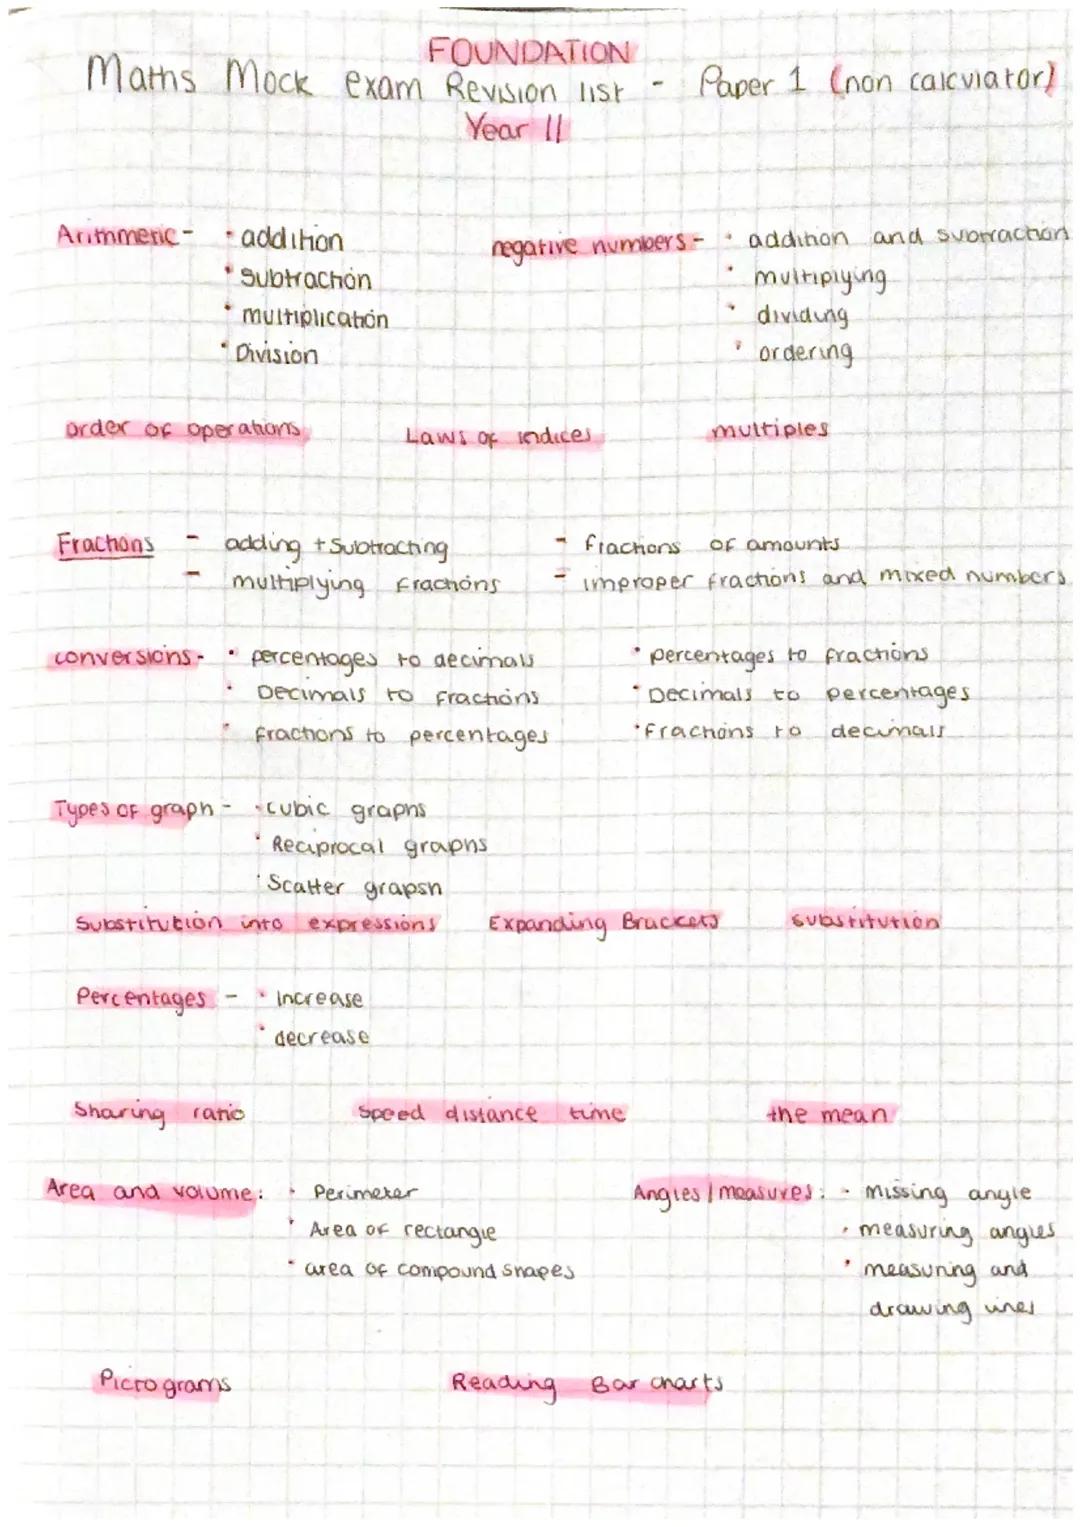 FOUNDATION
Maths Mock exam Revision list - Paper 1 (non calculator)
Year 11
Arithmetic - • addition
• Subtraction
• multiplication
• Division
negative numbers - • addition and subtraction
• multiplying
• dividing
• ordering
order of operations
Laws of indices
multiples
Fractions - adding + Subtracting
- multiplying fractions
- fractions of amounts
- improper fractions and mixed numbers
conversions - • percentages to decimals
• Decimals to fractions
• fractions to percentages
• percentages to fractions
• Decimals to percentages
• Fractions to decimals
Types of graph - • cubic graphs
• Reciprocal graphs
• Scatter grapsh
Substitution into expressions
Expanding Brackets
substitution
Percentages - • increase
• decrease
Sharing ratio
Speed distance time
the mean
Area and volume: • Perimeter
• Area of rectangle
• area of compound shapes
Angles / measures: • missing angle
• measuring angles
• measuring and
drawing lines
Pictograms
Reading Bar charts